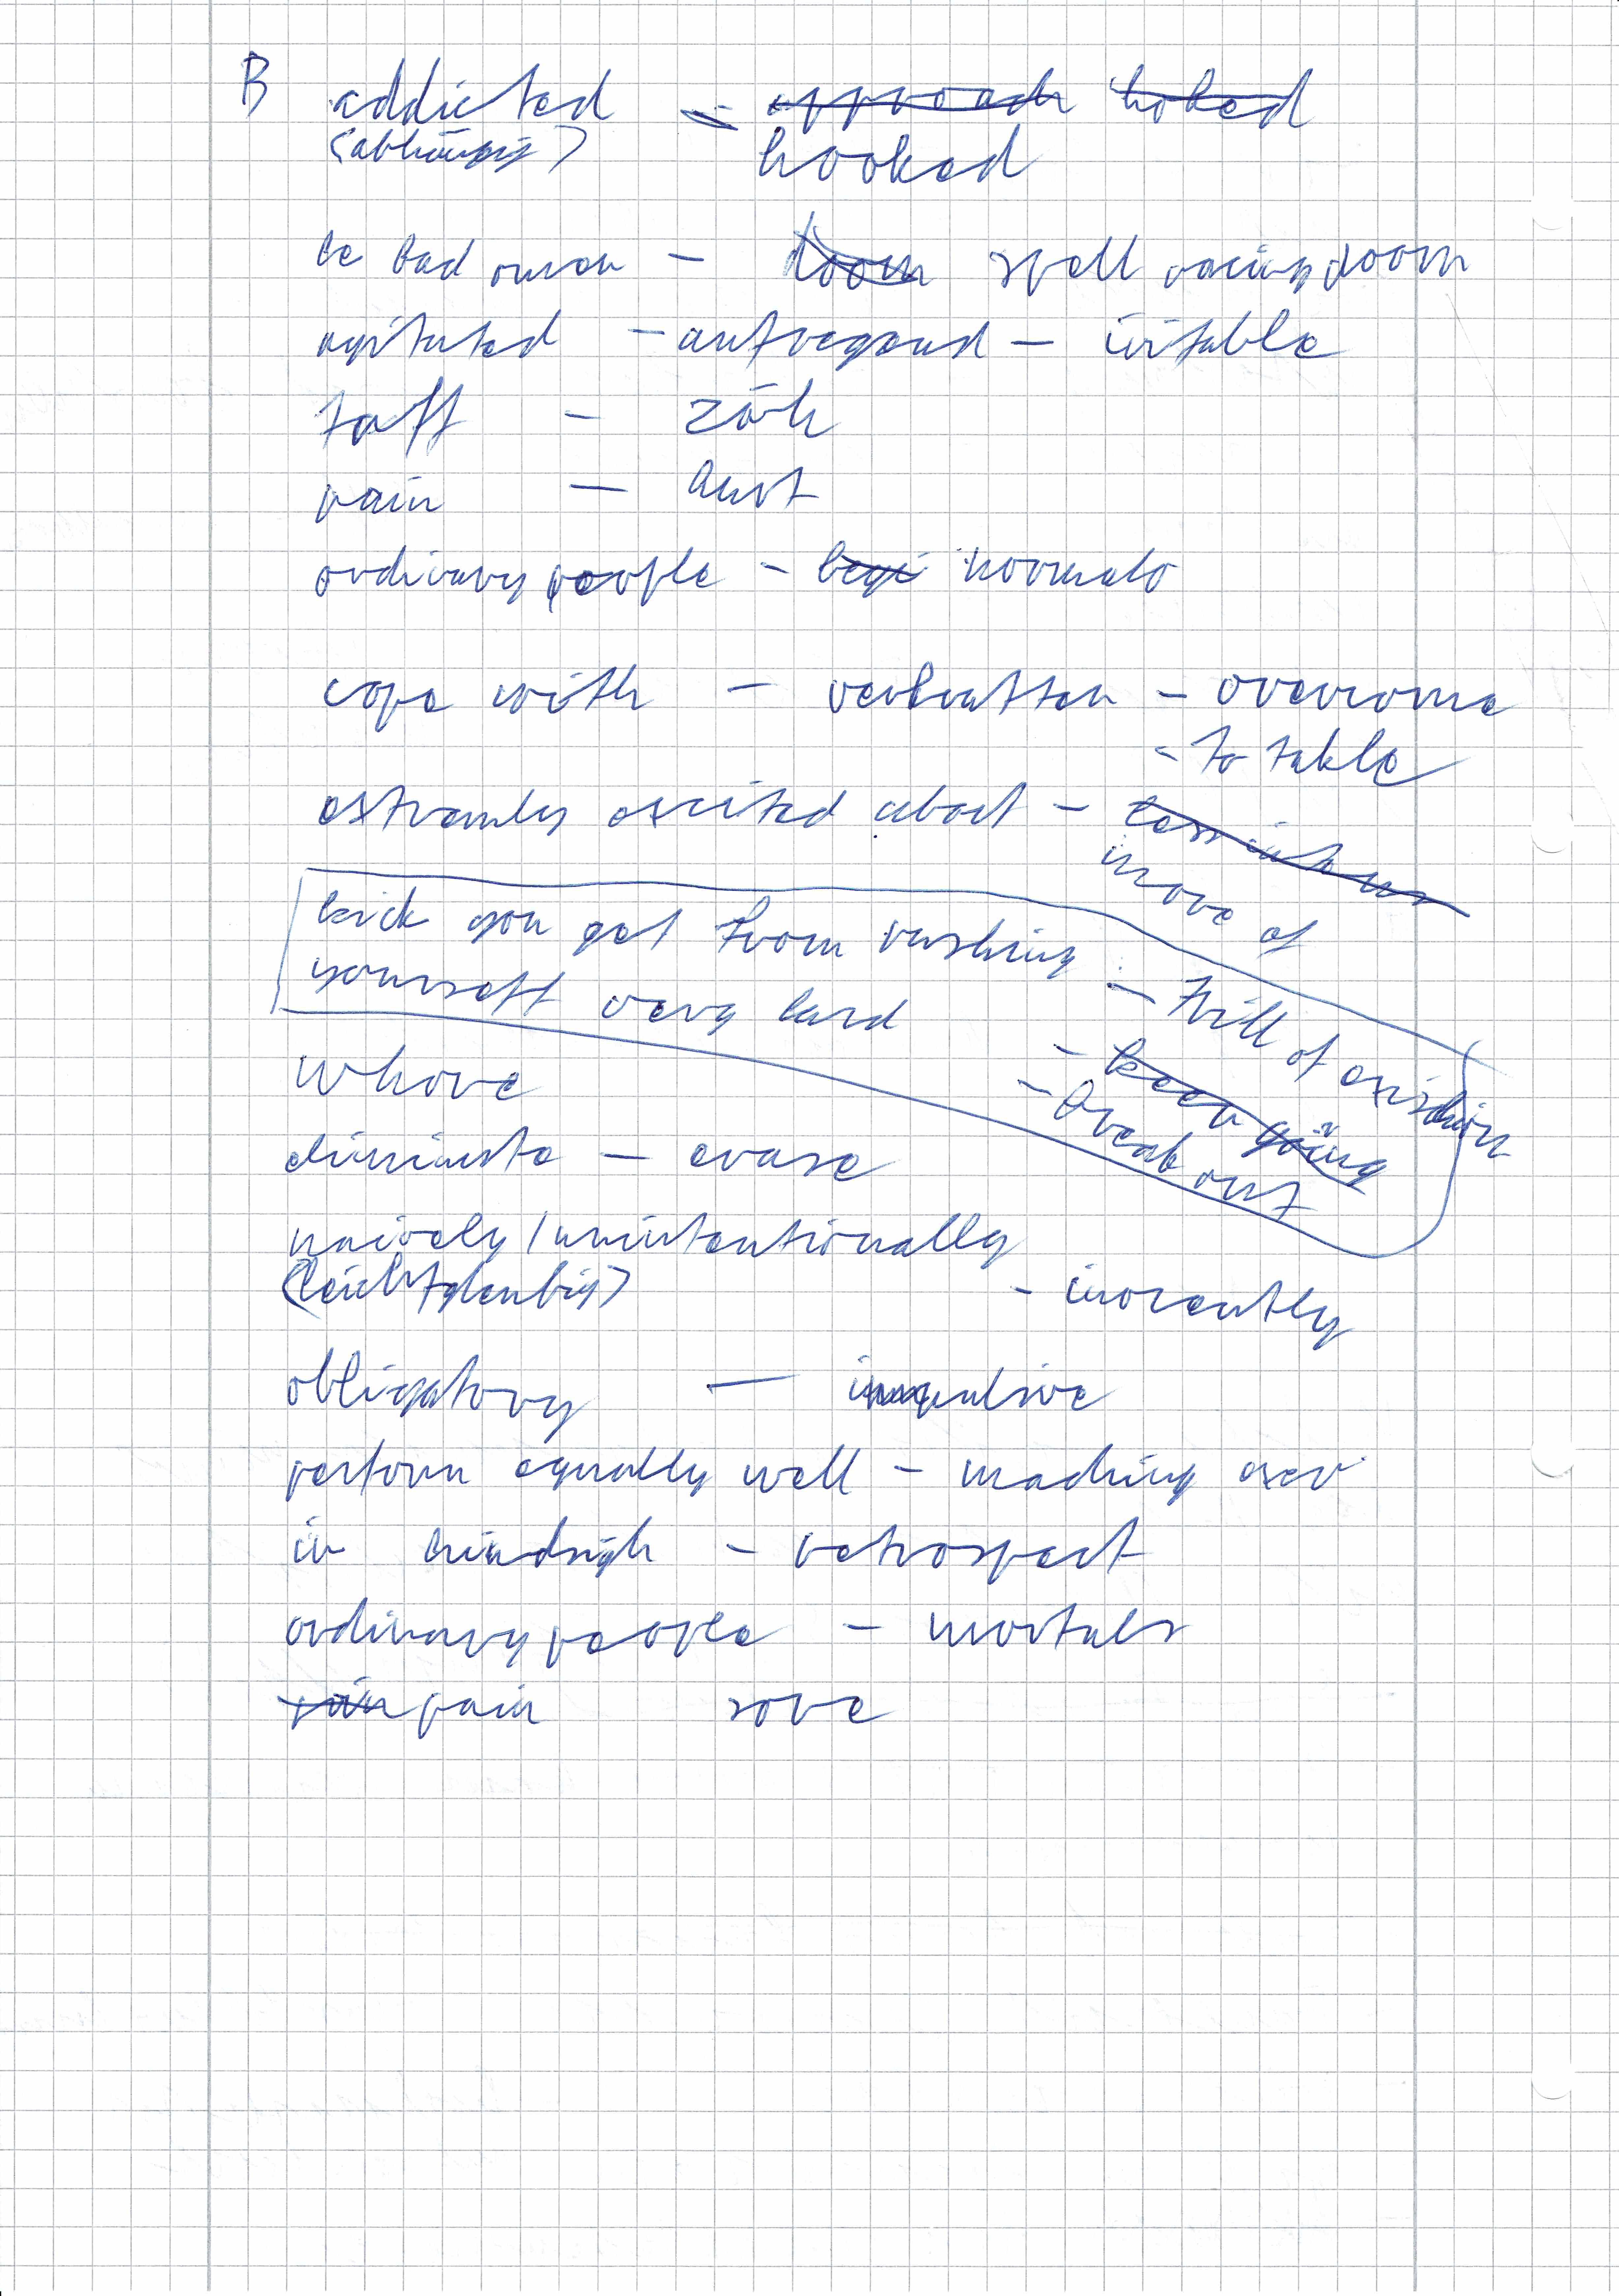 B addicted = approach hoked
(abhängig) hooked
be bad omen - doom spell racing doom
agitated - aufregend - iritable
taff - zäh
pain - hurt
ordinary people - normals
cope with - verkraften - overcome
- to takle
extremly excited about -
in ove of
kick you get from rushing
yourself very hard - trill of
- been going
- break out
whore
eliminate - erase
naively / unintentionally
(leichtgläubig) - inocently
obligatory - impulsive
perform equally well - maching
in hindsigh - retrospect
ordinary people - mortals
pain pain sore